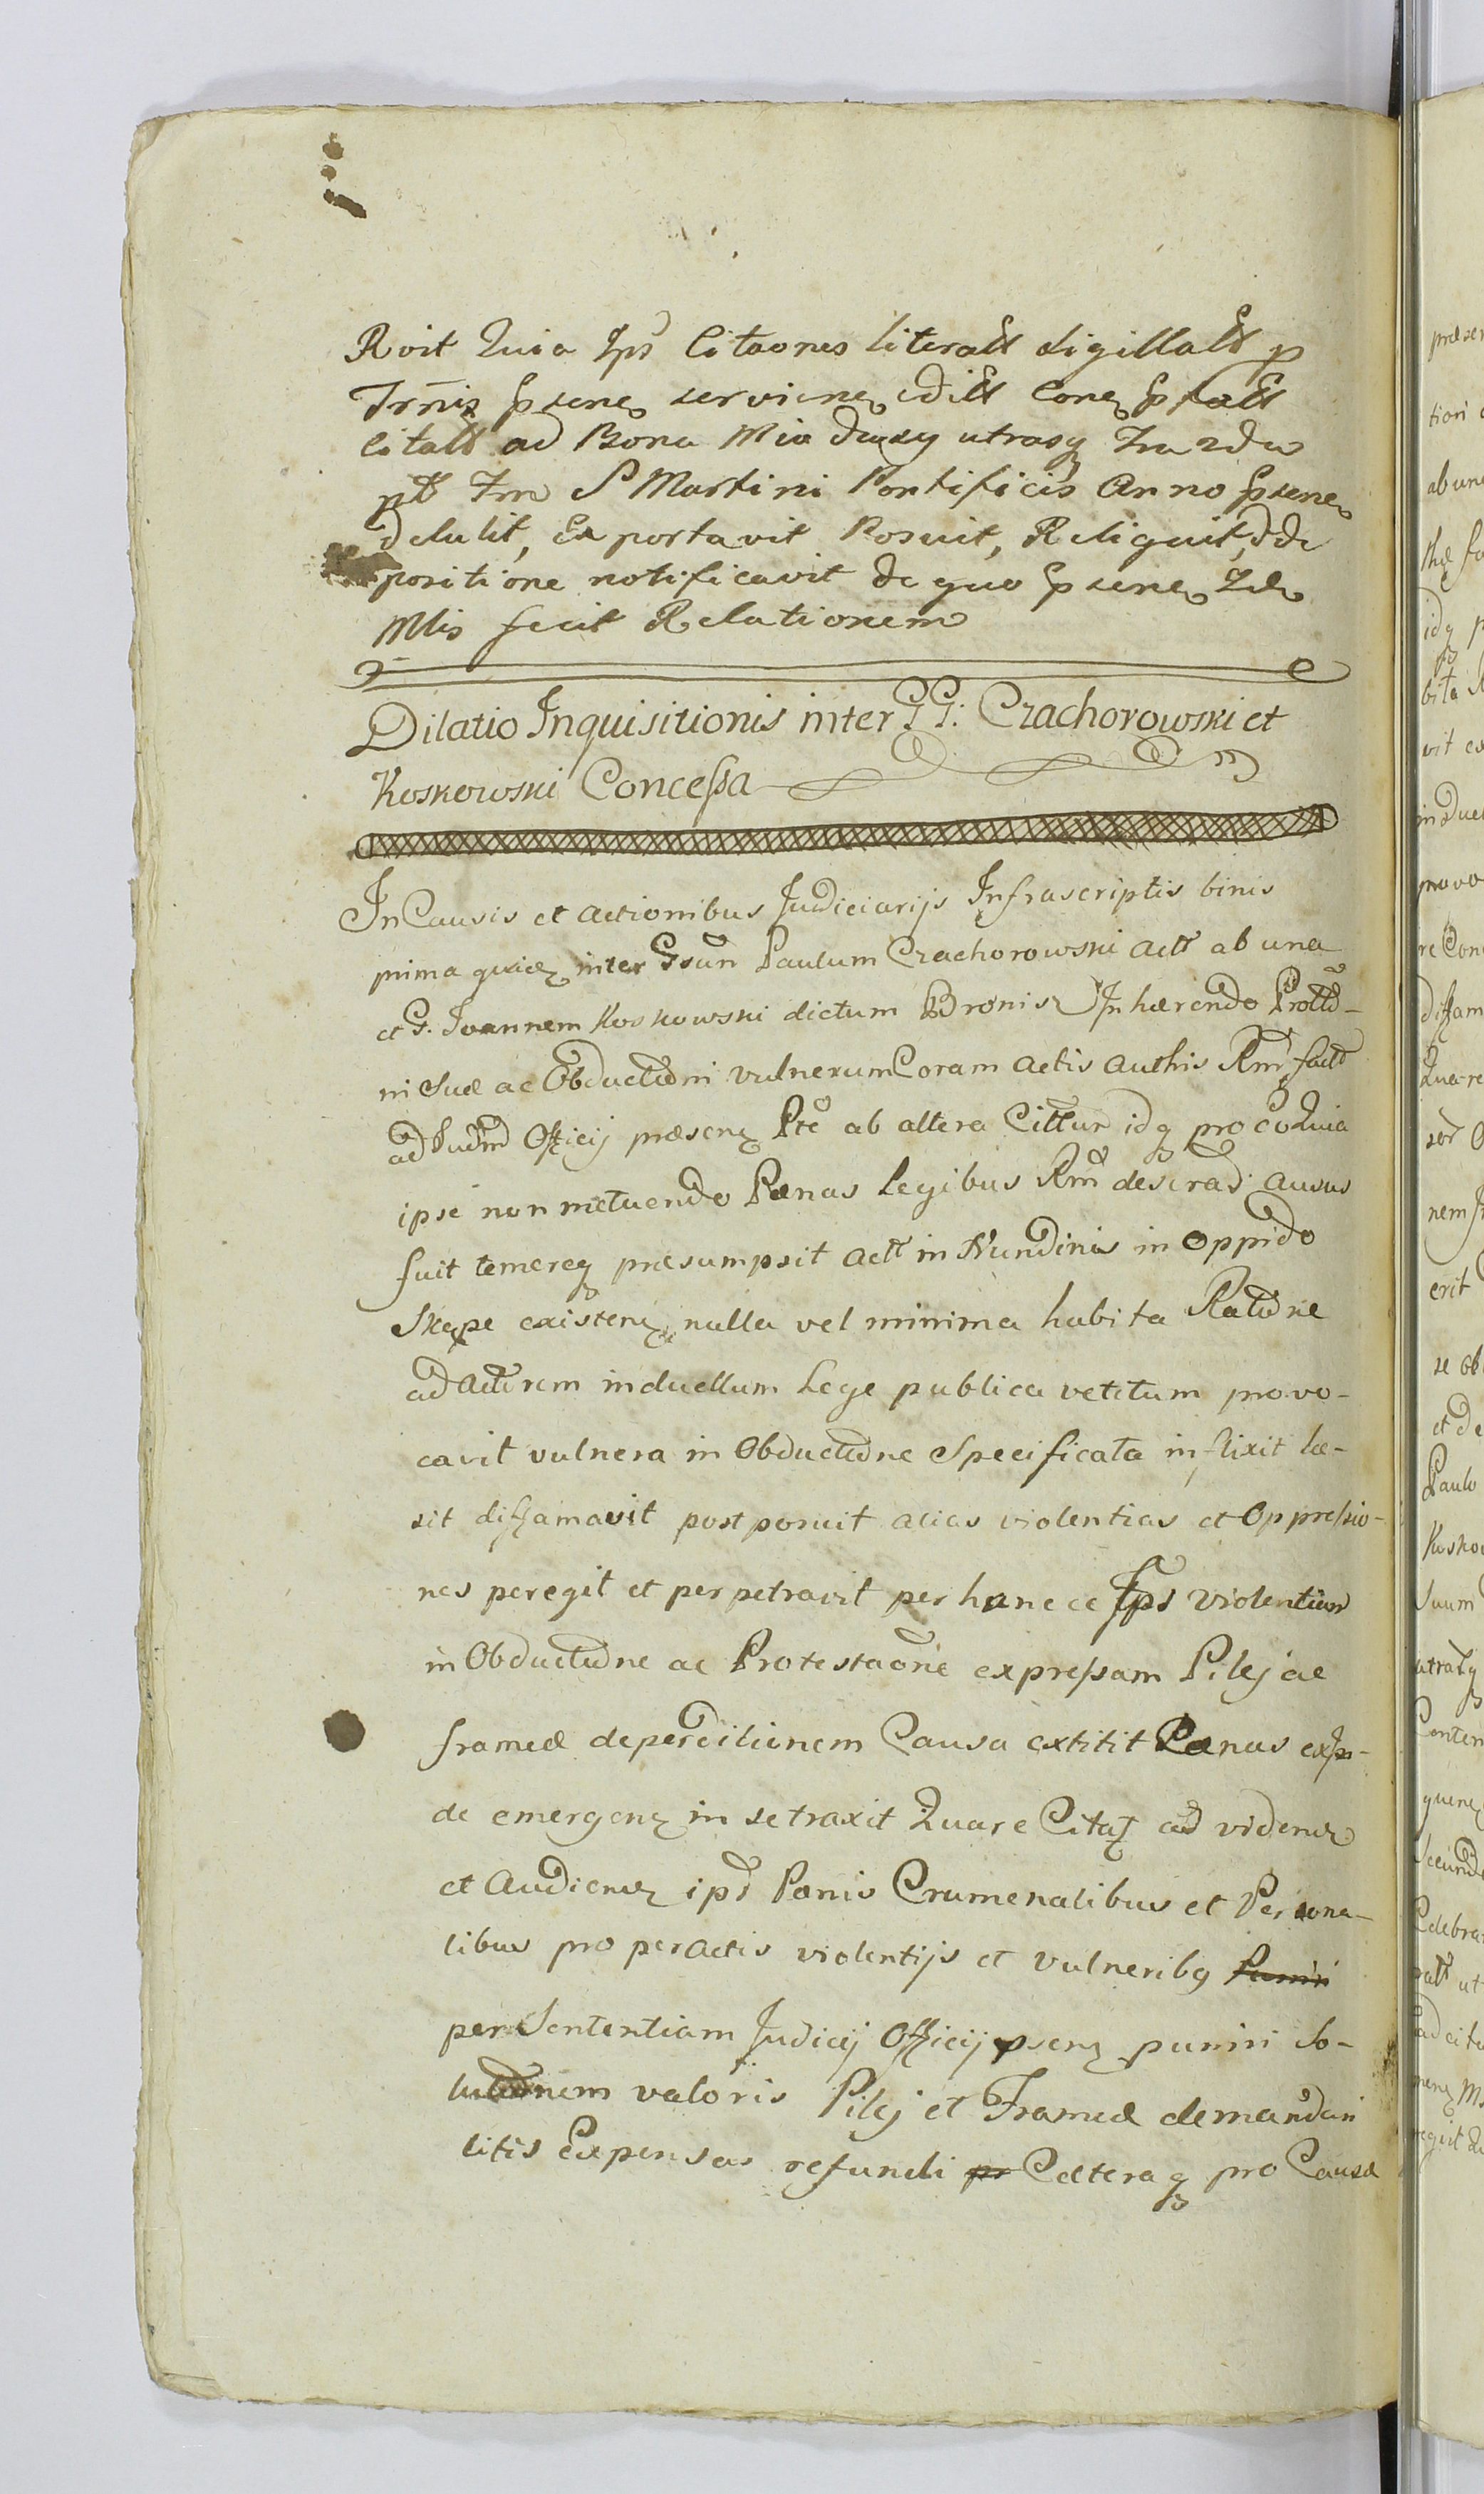 Rvit Quia Ips Citaones literall sigillall p
Trnis psene serviene edill Cone psall
Citall ad Bona Mia utrasq
ptt Tm S Martini Pontificis Anno psene
detulit, Exportavit Posuit, Reliquit, dde
positione notificavit de quo psene
Mlis fecit Relationem
Dilatio Inquisitionis inter GG: Czachorowski et
Koskowski Concessa
In Causis et actionibus Judiciarijs Infrascriptis binis
prima quidez inter Gsum Paulum Czachorowski actt ab una
et G. Joannem Koskowski dictum Bronisz Inhærendo Prott-
ni Suæ ac Obductioni vulnerum Coram actis authis Rmi factt
ad Judm Officij præsenz Pte ab altera Cittur idq pro eo Quia
ipse non metuendo Pænas Legibus Rmi descrad ausus
fuit temereq præsumpsit actt in Nundinis in oppido
Skępe existenz, nulla vel minima habita Ratione
ad actorem induellum Lege publica vetitum provo-
cavit vulnera in Obductione Specificata inflixit læ-
sit diffamavit postposuit alias violentias et Oppressio-
nes peregit et perpetravit per hancce Ips violentiam
in Obductione ac Protestaone expressam Pilej ac
frameæ deperditionem Causa extitit Pænas exin-
de emergenz in se traxit Quare Citaz ad videnz
et Audienz ipd Pænis Crumenalibus et Persona-
libus pro peractis violentijs et vulneribq Puniri
per Sententiam Judicij Officij psenz puniri So-
lutionem valoris Pilej et Frameæ demandari
litis Expensas refundi pr Cæteraq pro Causæ